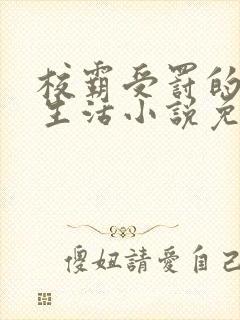 校霸受罰的
生活小說免
傻妞請愛自己